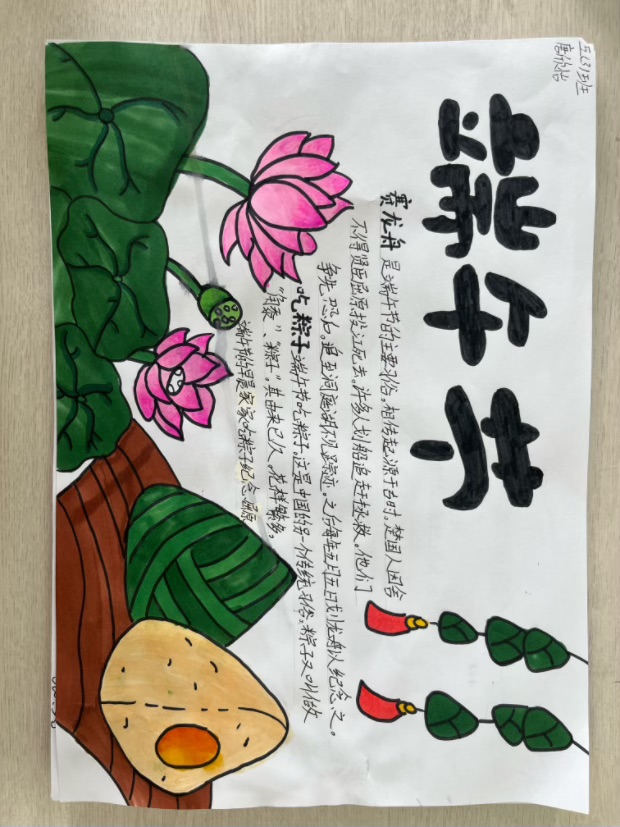 五(3)班
唐欣怡
端午节
赛龙舟 是端午节的主要习俗。相传起源于古时。楚国人因舍
不得贤臣屈原投江死去。许多人划船追赶拯救。他们
争先恐后。追至洞庭湖不见踪迹。之后每年五月五日划龙舟以纪念之。
吃粽子 端午节吃粽子。这是中国的另一个传统习俗。粽子又叫做
“角黍”、“粽子”。其由来已久。花样繁多。
端午节的早晨家家吃粽子纪念屈原